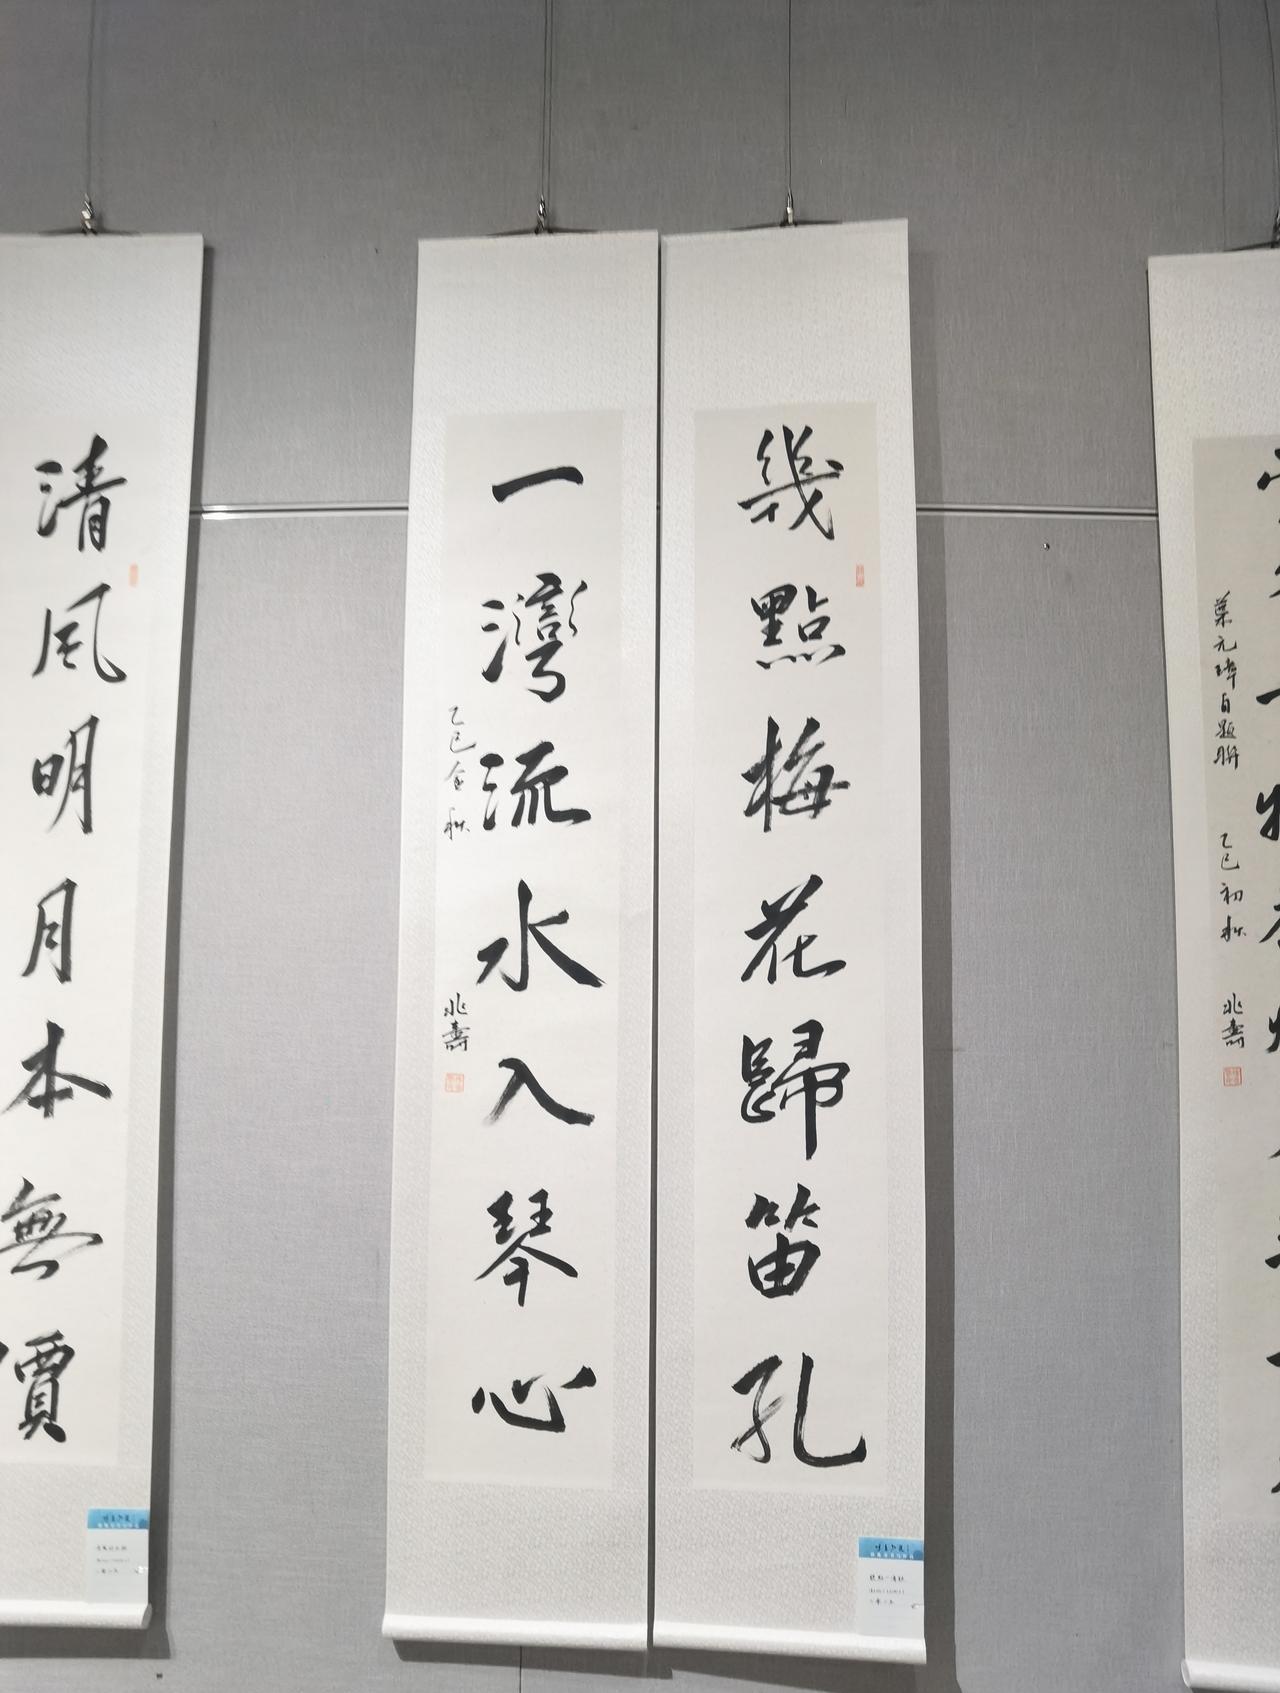 幾點梅花歸笛孔
一灣流水入琴心
乙巳金秋
兆壽
清風明月本無價
葉元璋自題聯
乙巳初秋
兆壽